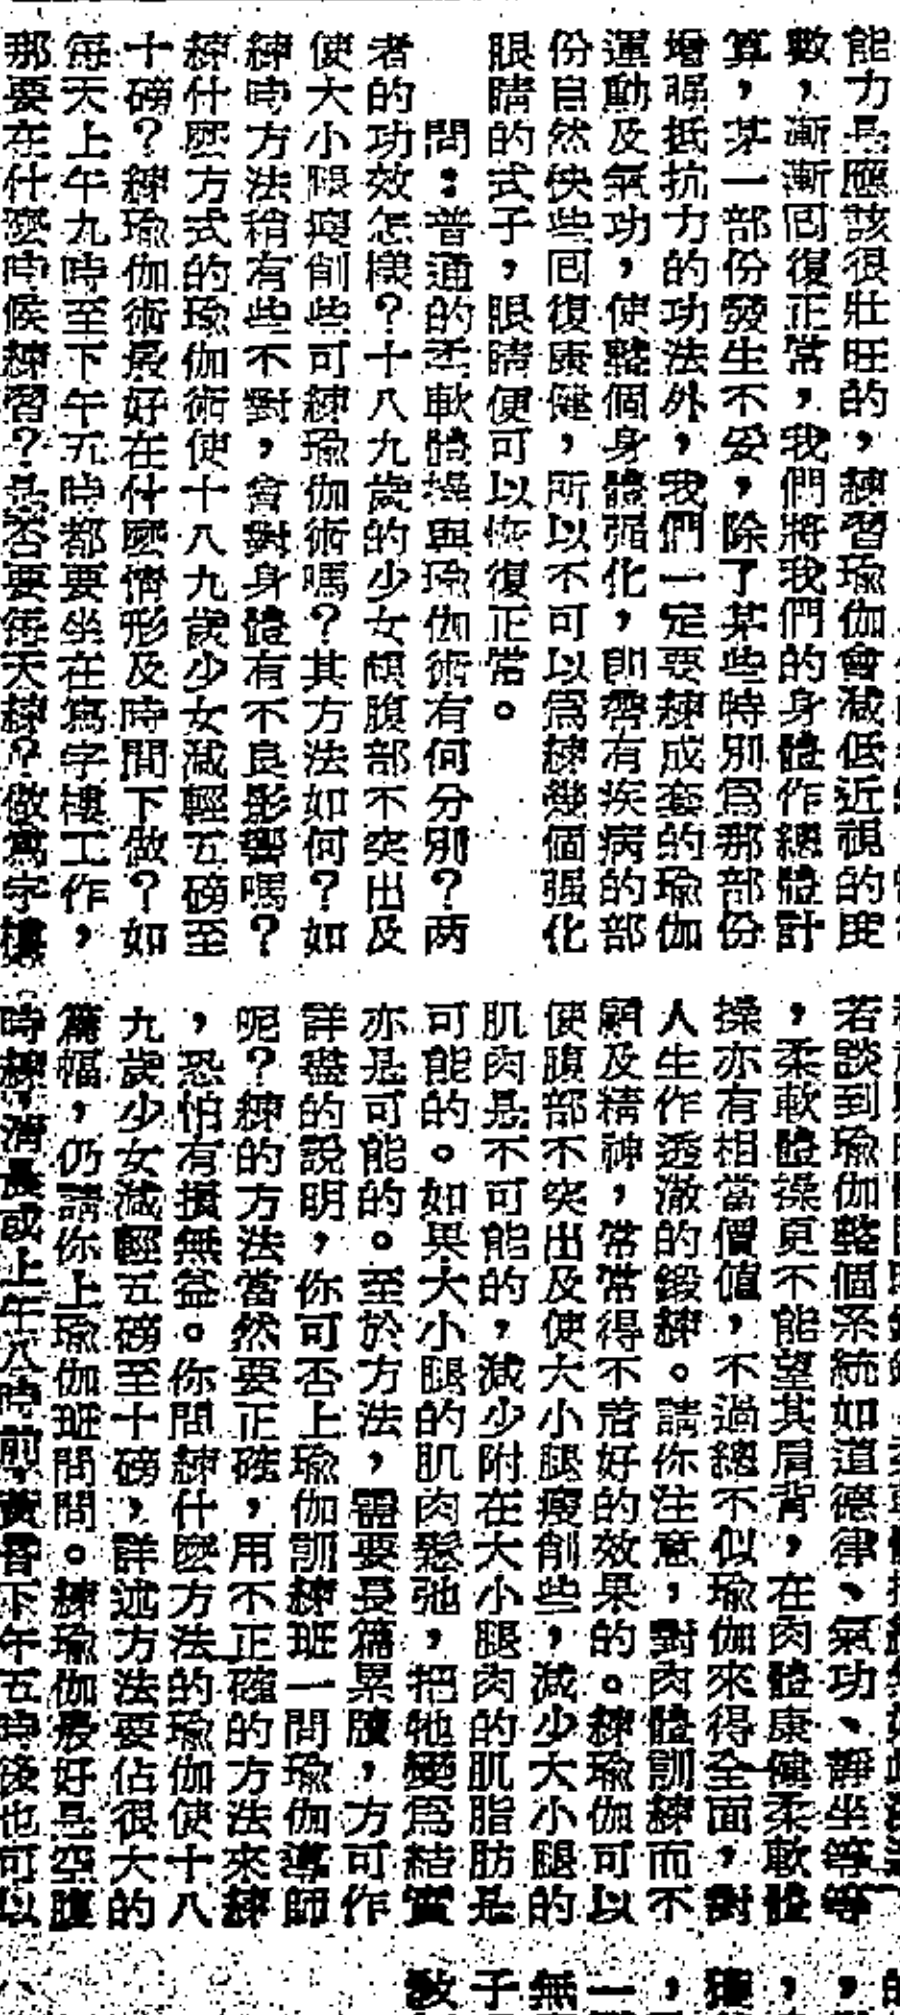 能力是應該很壯旺的，練習瑜伽會減低近視的度
數，漸漸囘復正常，我們將我們的身體作總體計
算，某一部份發生不妥，除了某些時別爲那部份
增强抵抗力的功法外，我們一定要練成套的瑜伽
運動及氣功，使整個身體强化，即帶有疾病的部
份自然快些囘復康健，所以不可以爲練幾個强化
眼睛的式子，眼睛便可以恢復正常。
問：普通的柔軟體操與瑜伽術有何分別？两
者的功效怎樣？十八九歲的少女頗腹部不突出及
使大小腿瘦削些可練瑜伽術嗎？其方法如何？如
練時方法稍有些不對，會對身體有不良影響嗎？
練什麽方式的瑜伽術使十八九歲少女減輕五磅至
十磅？練瑜伽術最好在什麽情形及時間下做？如
每天上午九時至下午五時都要坐在寫字樓工作，
那要在什麽時候練習？是否要每天練？做寫字樓
若談到瑜伽整個系統如道德律、氣功、靜坐等等
，柔軟體操更不能望其肩背，在肉體康健柔軟體
操亦有相當價值，不過總不似瑜伽來得全面，對
人生作透澈的鍛練。請你注意，對肉體訓練而不
顧及精神，常常得不着好的效果的。練瑜伽可以
使腹部不突出及使大小腿瘦削些，減少大小腿的
肌肉是不可能的，減少附在大小腿肉的肌脂肪是
可能的。如果大小腿的肌肉鬆弛，把牠變爲結實
亦是可能的。至於方法，需要長篇累牘，方可作
詳盡的說明，你可否上瑜伽訓練班一問瑜伽導師
呢？練的方法當然要正確，用不正確的方法來練
，恐怕有損無益。你問練什麽方法的瑜伽使十八
九歲少女減輕五磅至十磅，詳述方法要佔很大的
篇幅，仍請你上瑜伽班問問。練瑜伽最好是空腹
時練，清晨或上午八時前，黃昏下午五時後也可以